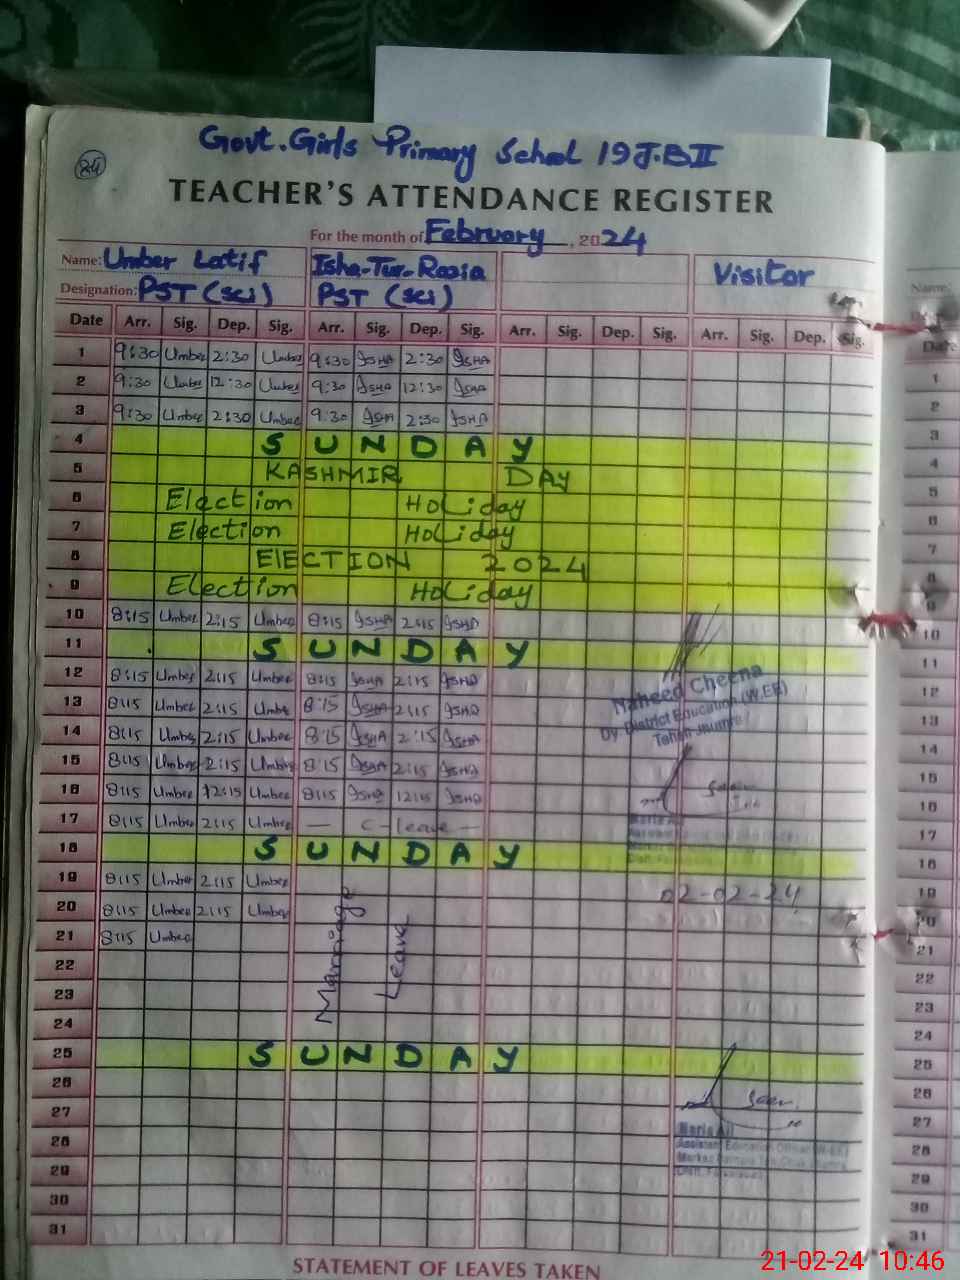 Govt. Girls Primary School 19 J.B II
24
TEACHER'S ATTENDANCE REGISTER
For the month of February, 2024
Name: Umber Latif Isha-Tur-Razia Visitor Name:
Designation: PST (Sci) PST (Sci)
Date Arr. Sig. Dep. Sig. Arr. Sig. Dep. Sig. Arr. Sig. Dep. Sig. Arr. Sig. Dep. Sig. Date
1 9:30 Umber 2:30 Umber 9:30 ISHA 2:30 ISHA 1
2 9:30 Umber 12:30 Umber 9:30 ISHA 12:30 ISHA 2
3 9:30 Umber 2:30 Umber 9:30 ISHA 2:30 ISHA 3
4 SUNDAY 4
5 KASHMIR DAY 5
6 Election Holiday 6
7 Election Holiday 7
8 ELECTION 2024 8
9 Election Holiday 9
10 8:15 Umber 2:15 Umber 8:15 ISHA 2:15 ISHA 10
11 SUNDAY 11
12 8:15 Umber 2:15 Umber 8:15 ISHA 2:15 ISHA 12
Naheed Cheena
13 8:15 Umber 2:15 Umber 8:15 ISHA 2:15 ISHA 13
Dy. District Education (W.EE)
14 8:15 Umber 2:15 Umber 8:15 ISHA 2:15 ISHA 14
15 8:15 Umber 2:15 Umber 8:15 ISHA 2:15 ISHA 15
16 8:15 Umber 12:15 Umber 8:15 ISHA 12:15 ISHA Seen 16
17 8:15 Umber 2:15 Umber — C-leave — 17
18 SUNDAY 18
19 8:15 Umber 2:15 Umber 02-02-24 19
20 8:15 Umber 2:15 Umber 20
21 8:15 Umber 21
Marriage Leave
22 22
23 23
24 24
25 SUNDAY 25
26 26
27 Seen 27
Maria Ali
28 Assistant Education Officer (W-EE) 28
29 29
30 30
31 31
STATEMENT OF LEAVES TAKEN
21-02-24 10:46